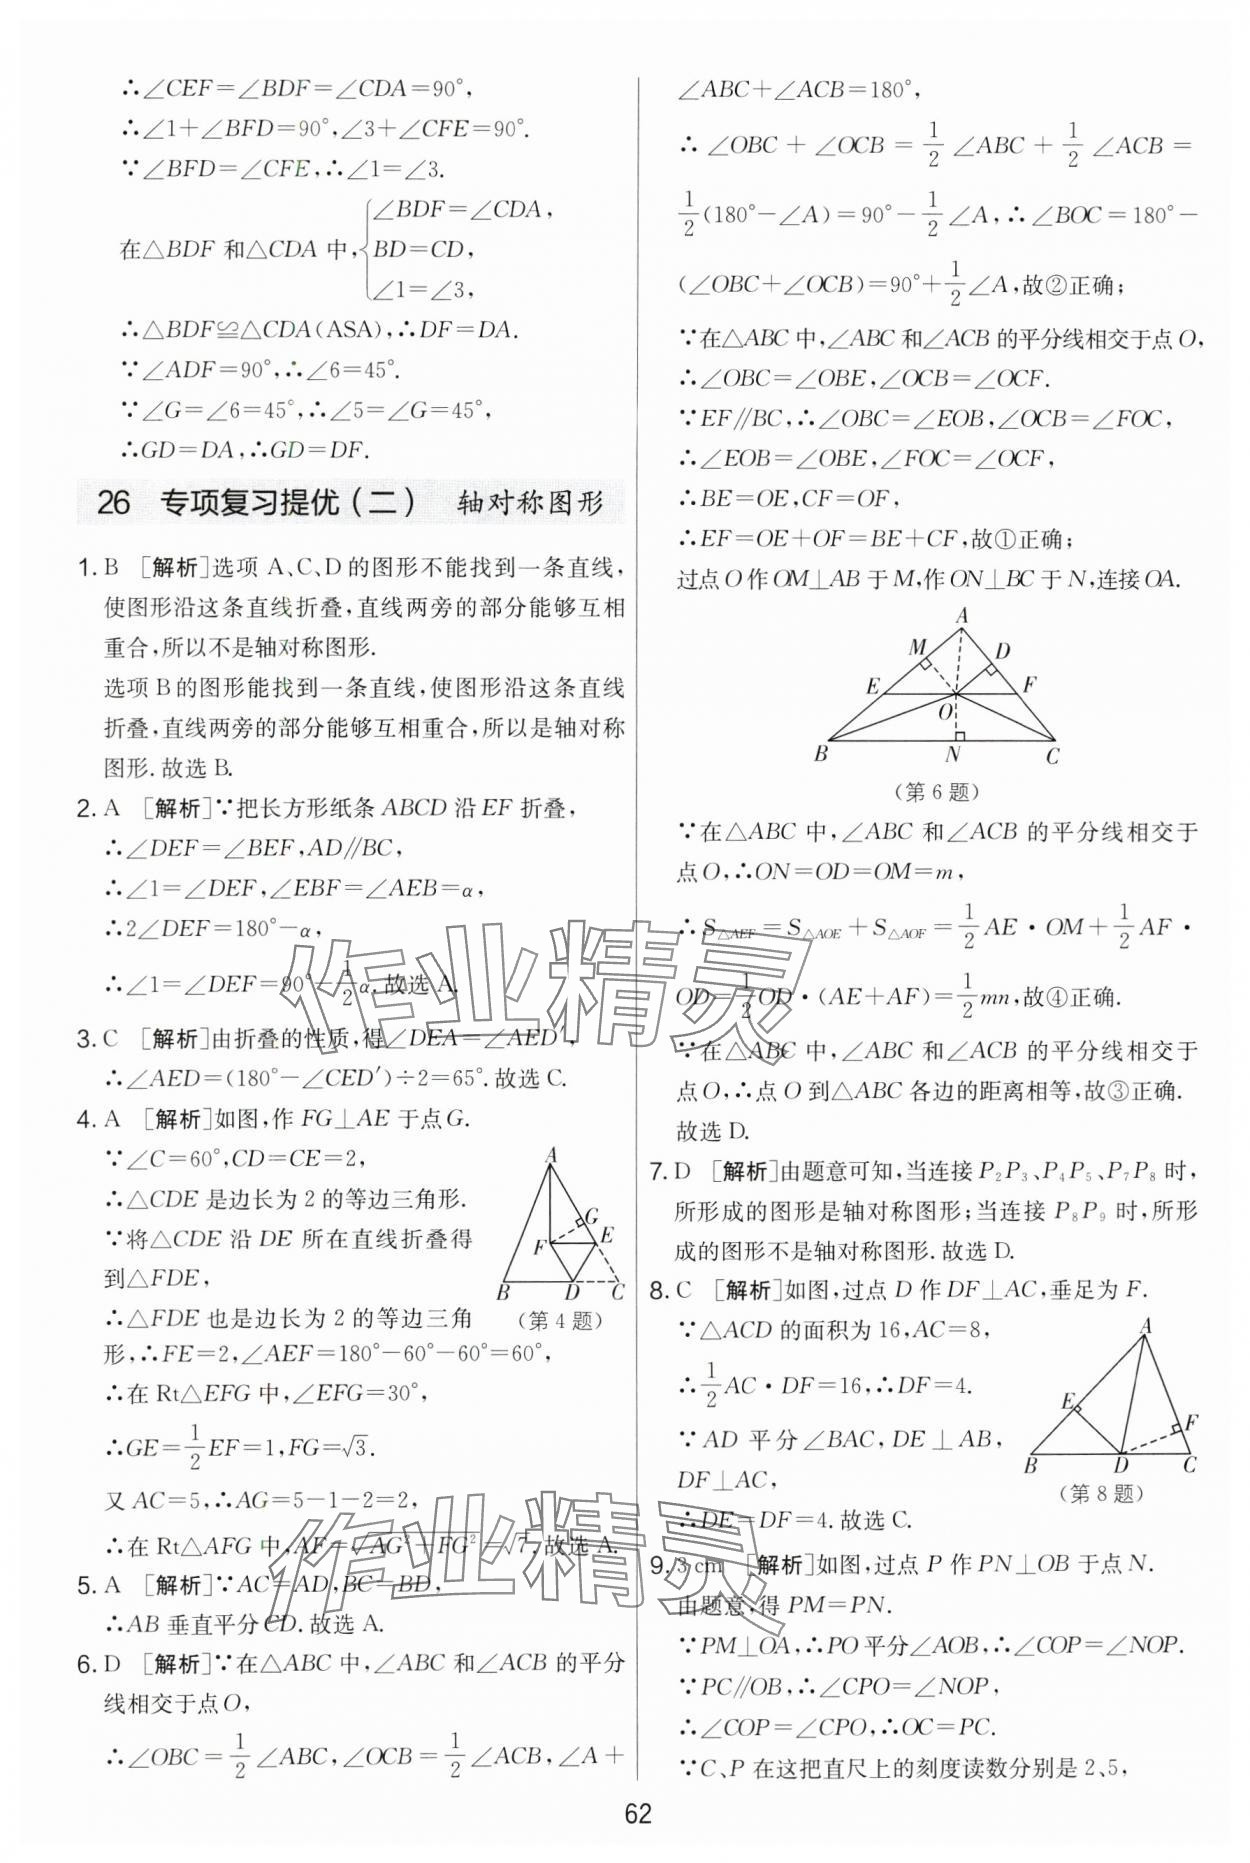 ∴∠CEF=∠BDF=∠CDA=90°,
∴∠1+∠BFD=90°,∠3+∠CFE=90°.
∵∠BFD=∠CFE,∴∠1=∠3.
在△BDF 和△CDA 中,{∠BDF=∠CDA,
BD=CD,
∠1=∠3,
∴△BDF≌△CDA(ASA),∴DF=DA.
∵∠ADF=90°,∴∠6=45°.
∵∠G=∠6=45°,∴∠5=∠G=45°,
∴GD=DA,∴GD=DF.
26 专项复习提优(二) 轴对称图形
1. B [解析]选项 A、C、D 的图形不能找到一条直线,
使图形沿这条直线折叠,直线两旁的部分能够互相
重合,所以不是轴对称图形.
选项 B 的图形能找到一条直线,使图形沿这条直线
折叠,直线两旁的部分能够互相重合,所以是轴对称
图形.故选 B.
2. A [解析]∵把长方形纸条 ABCD 沿 EF 折叠,
∴∠DEF=∠BEF,AD∥BC,
∴∠1=∠DEF,∠EBF=∠AEB=α,
∴2∠DEF=180°-α,
∴∠1=∠DEF=90°-1/2α.故选 A.
3. C [解析]由折叠的性质,得∠DEA=∠AED′,
∴∠AED=(180°-∠CED′)÷2=65°.故选 C.
4. A [解析]如图,作 FG⊥AE 于点 G.
∵∠C=60°,CD=CE=2,
∴△CDE 是边长为 2 的等边三角形.
∵将△CDE 沿 DE 所在直线折叠得
到△FDE,
∴△FDE 也是边长为 2 的等边三角
形,∴FE=2,∠AEF=180°-60°-60°=60°,
A
G
F
E
B
D
C
(第 4 题)
∴在 Rt△EFG 中,∠EFG=30°,
∴GE=1/2EF=1,FG=√3.
又 AC=5,∴AG=5-1-2=2,
∴在 Rt△AFG 中,AF=√(AG²+FG²)=√7.故选 A.
5. A [解析]∵AC=AD,BC=BD,
∴AB 垂直平分 CD.故选 A.
6. D [解析]∵在△ABC 中,∠ABC 和∠ACB 的平分
线相交于点 O,
∴∠OBC=1/2∠ABC,∠OCB=1/2∠ACB,∠A+
∠ABC+∠ACB=180°,
∴∠OBC+∠OCB=1/2∠ABC+1/2∠ACB=
1/2(180°-∠A)=90°-1/2∠A,∴∠BOC=180°-
(∠OBC+∠OCB)=90°+1/2∠A,故②正确;
∵在△ABC 中,∠ABC 和∠ACB 的平分线相交于点 O,
∴∠OBC=∠OBE,∠OCB=∠OCF.
∵EF∥BC,∴∠OBC=∠EOB,∠OCB=∠FOC,
∴∠EOB=∠OBE,∠FOC=∠OCF,
∴BE=OE,CF=OF,
∴EF=OE+OF=BE+CF,故①正确;
过点 O 作 OM⊥AB 于 M,作 ON⊥BC 于 N,连接 OA.
A
M
D
E
F
O
B
N
C
(第 6 题)
∵在△ABC 中,∠ABC 和∠ACB 的平分线相交于
点 O,∴ON=OD=OM=m,
∴S△AEF=S△AOE+S△AOF=1/2AE·OM+1/2AF·
OD=1/2OD·(AE+AF)=1/2mn,故④正确.
∵在△ABC 中,∠ABC 和∠ACB 的平分线相交于
点 O,∴点 O 到△ABC 各边的距离相等,故③正确.
故选 D.
7. D [解析]由题意可知,当连接 P₂P₃、P₄P₅、P₇P₈ 时,
所形成的图形是轴对称图形;当连接 P₈P₉ 时,所形
成的图形不是轴对称图形.故选 D.
8. C [解析]如图,过点 D 作 DF⊥AC,垂足为 F.
∵△ACD 的面积为 16,AC=8,
∴1/2AC·DF=16,∴DF=4.
∵AD 平分∠BAC,DE⊥AB,
DF⊥AC,
∴DE=DF=4.故选 C.
A
E
F
B
D
C
(第 8 题)
9. 3 cm [解析]如图,过点 P 作 PN⊥OB 于点 N.
由题意,得 PM=PN.
∵PM⊥OA,∴PO 平分∠AOB,∴∠COP=∠NOP.
∵PC∥OB,∴∠CPO=∠NOP,
∴∠COP=∠CPO,∴OC=PC.
∵C、P 在这把直尺上的刻度读数分别是 2、5,
62
作业精灵
作业精灵